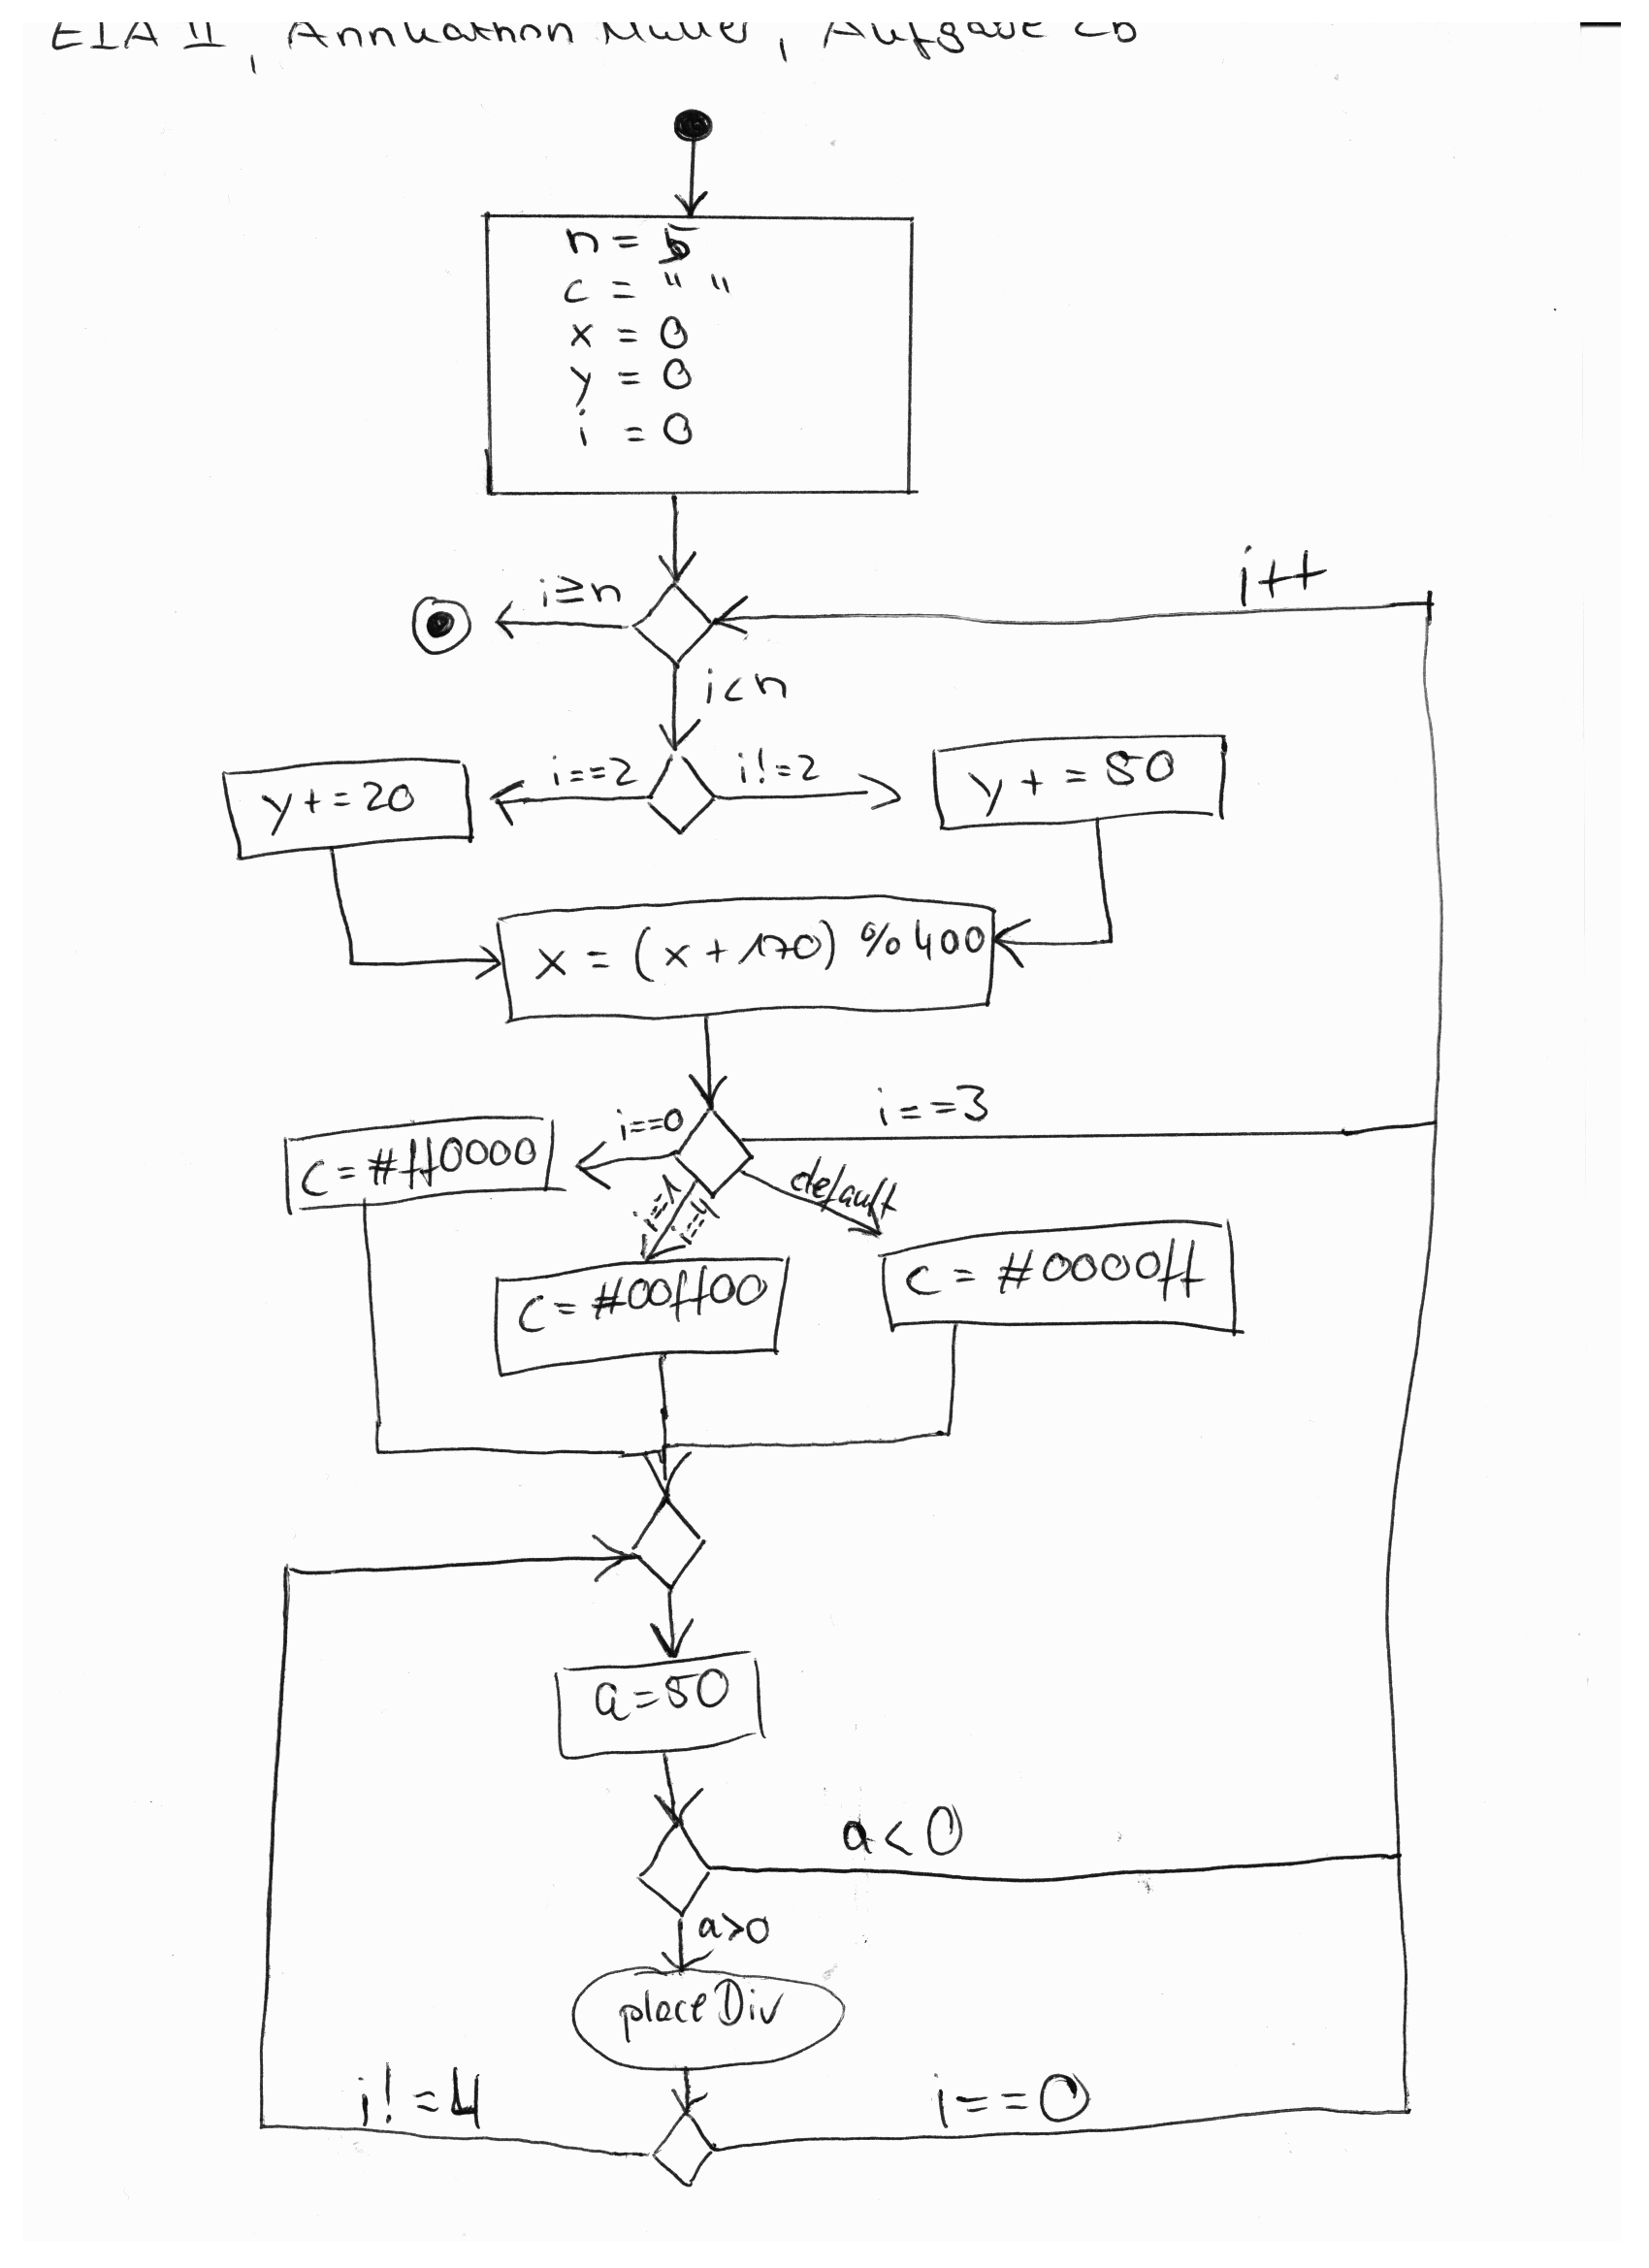 EIA II, Annkathrin Müller, Aufgabe 2b
n = 5
c = " "
x = 0
y = 0
i = 0
i≥n
i++
i<n
i==2
i!=2
y+=20
y+=50
x = (x+170) %400
i==0
i==3
c=#ff0000
i==1
i==4
default
c=#00ff00
c = #0000ff
a=50
a<0
a>0
placeDiv
i!=4
i==0